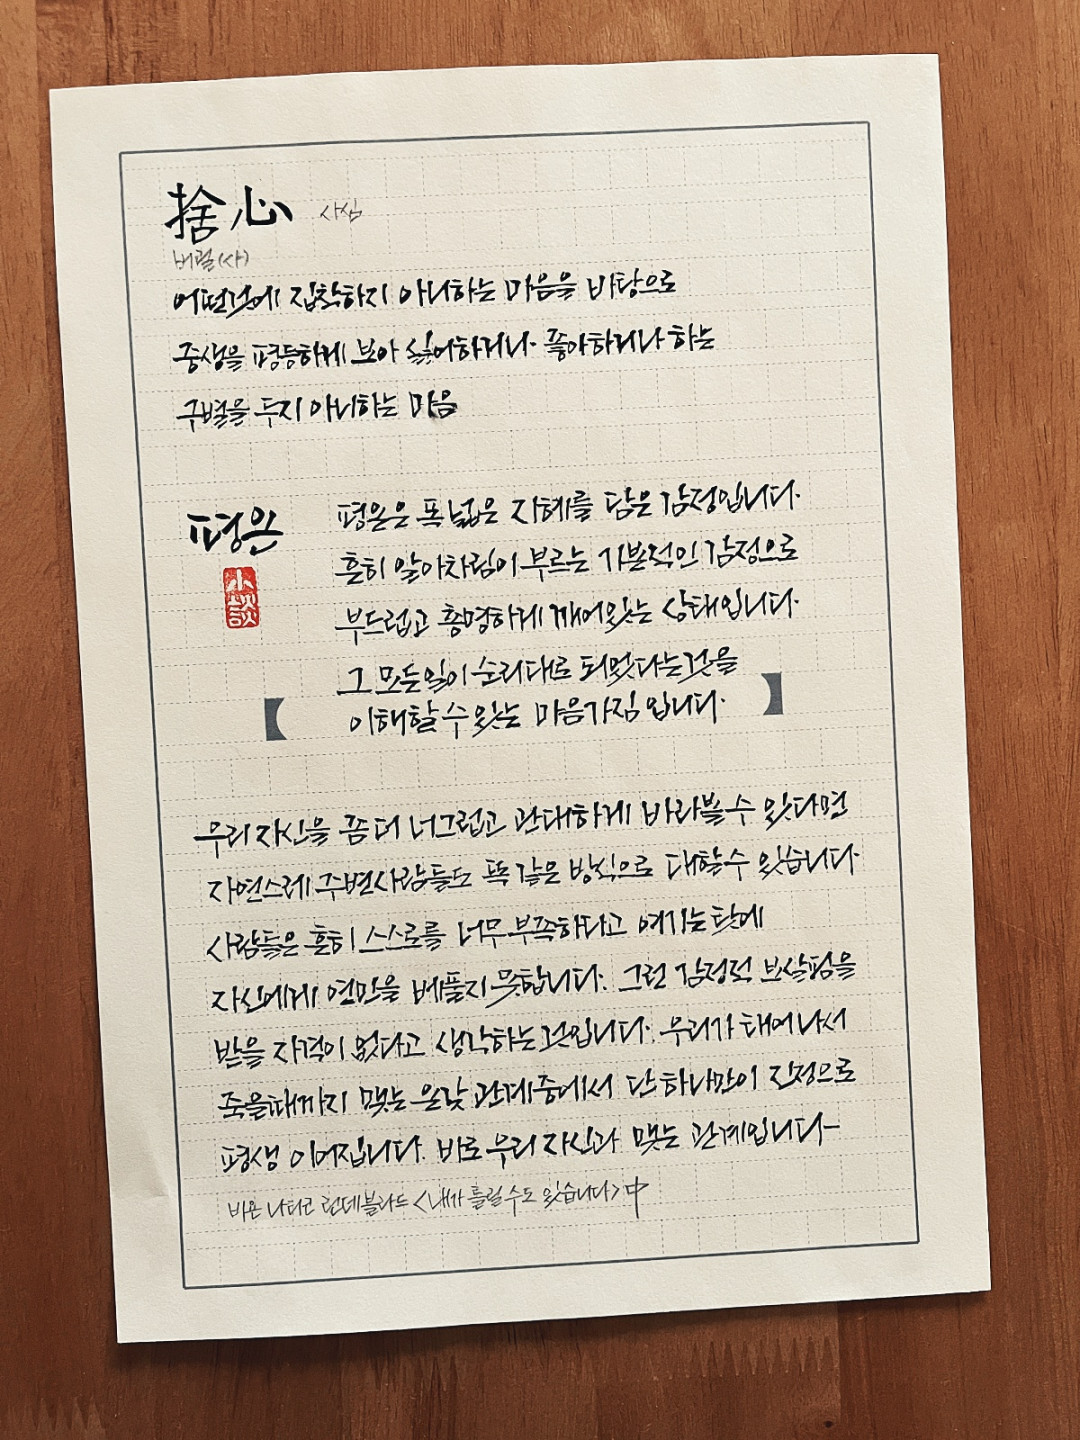 捨心 사심
버릴(사)
어떤것에 집착하지 아니하는 마음을 바탕으로
중생을 평등하게 보아 싫어하거나 좋아하거나 하는
구별을 두지 아니하는 마음
평온
小談
평온은 폭 넓은 지혜를 담은 감정입니다.
흔히 알아차림이 부르는 기본적인 감정으로
부드럽고 총명하게 깨어있는 상태입니다.
그 모든일이 순리대로 되었다는것을
이해할 수 있는 마음가짐 입니다.
우리 자신을 좀 더 너그럽고 관대하게 바라볼 수 있다면
자연스레 주변사람들도 똑 같은 방식으로 대할수 있습니다.
사람들은 흔히 스스로를 너무 부족하다고 여기는 탓에
자신에게 연민을 베풀지 못합니다. 그런 감정적 보살핌을
받을 자격이 없다고 생각하는 것입니다. 우리가 태어나서
죽을때까지 맺는 온갖 관계중에서 단 하나만이 진정으로
평생 이어집니다. 바로 우리 자신과 맺는 관계입니다-
비욘 나티코 린데블라드 <내가 틀릴 수도 있습니다> 中